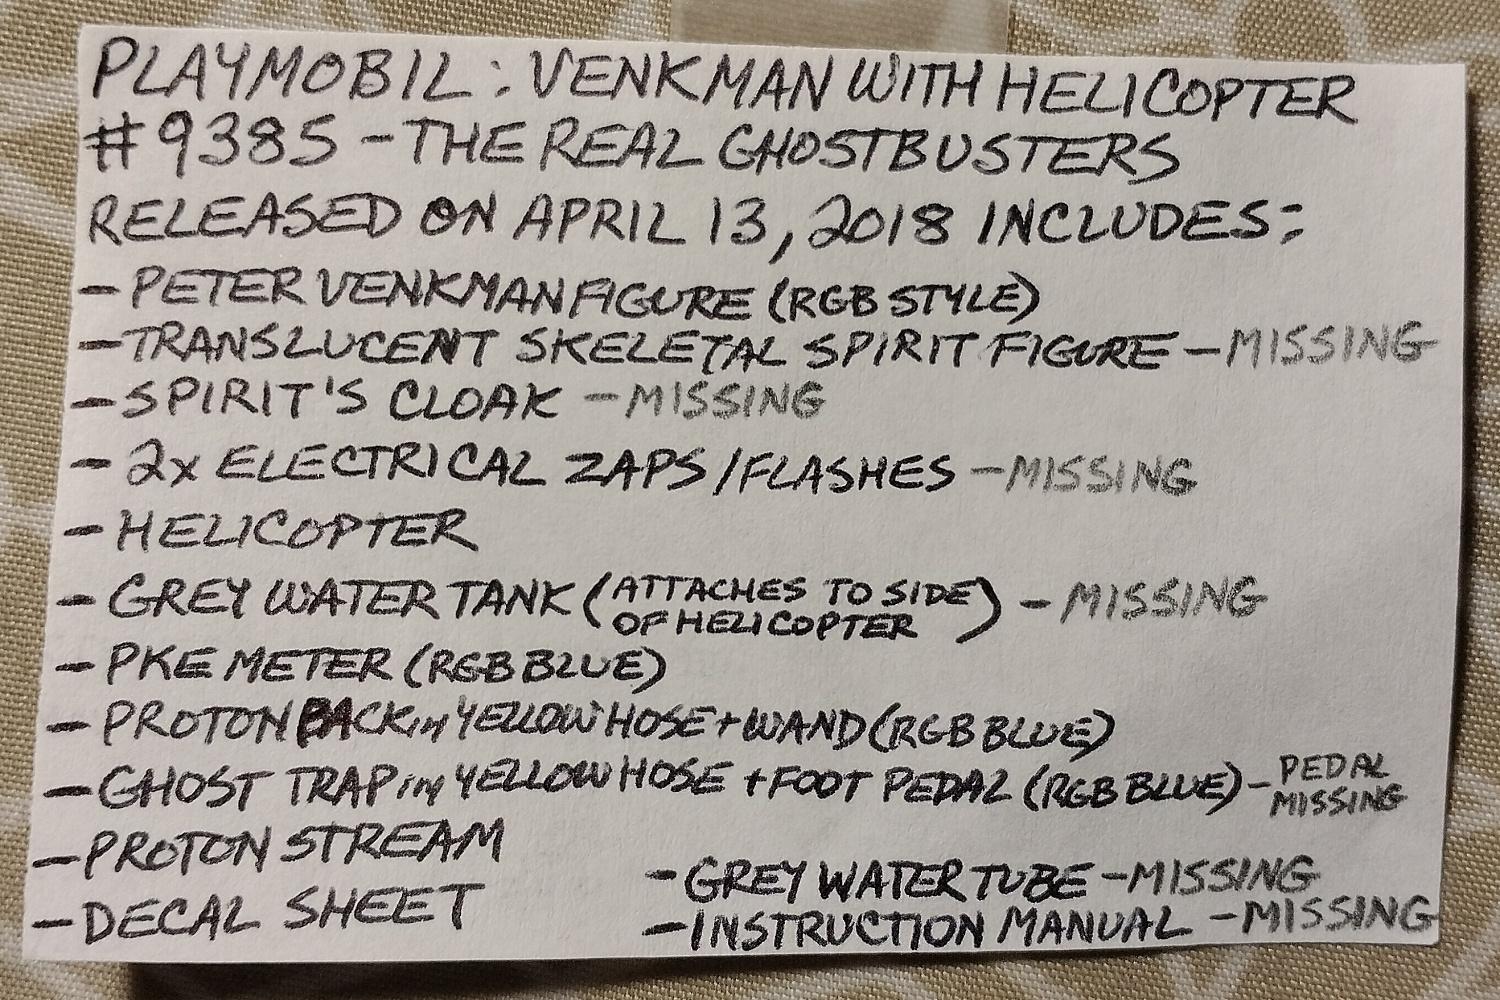 PLAYMOBIL: VENKMAN WITH HELICOPTER
#9385 - THE REAL GHOSTBUSTERS
RELEASED ON APRIL 13, 2018 INCLUDES:
- PETER VENKMAN FIGURE (RGB STYLE)
- TRANSLUCENT SKELETAL SPIRIT FIGURE - MISSING
- SPIRIT'S CLOAK - MISSING
- 2x ELECTRICAL ZAPS/FLASHES - MISSING
- HELICOPTER
- GREY WATER TANK (ATTACHES TO SIDE
OF HELICOPTER) - MISSING
- PKE METER (RGB BLUE)
- PROTON PACK w/ YELLOW HOSE + WAND (RGB BLUE)
- GHOST TRAP w/ YELLOW HOSE + FOOT PEDAL (RGB BLUE) - PEDAL
MISSING
- PROTON STREAM
- DECAL SHEET
- GREY WATER TUBE - MISSING
- INSTRUCTION MANUAL - MISSING